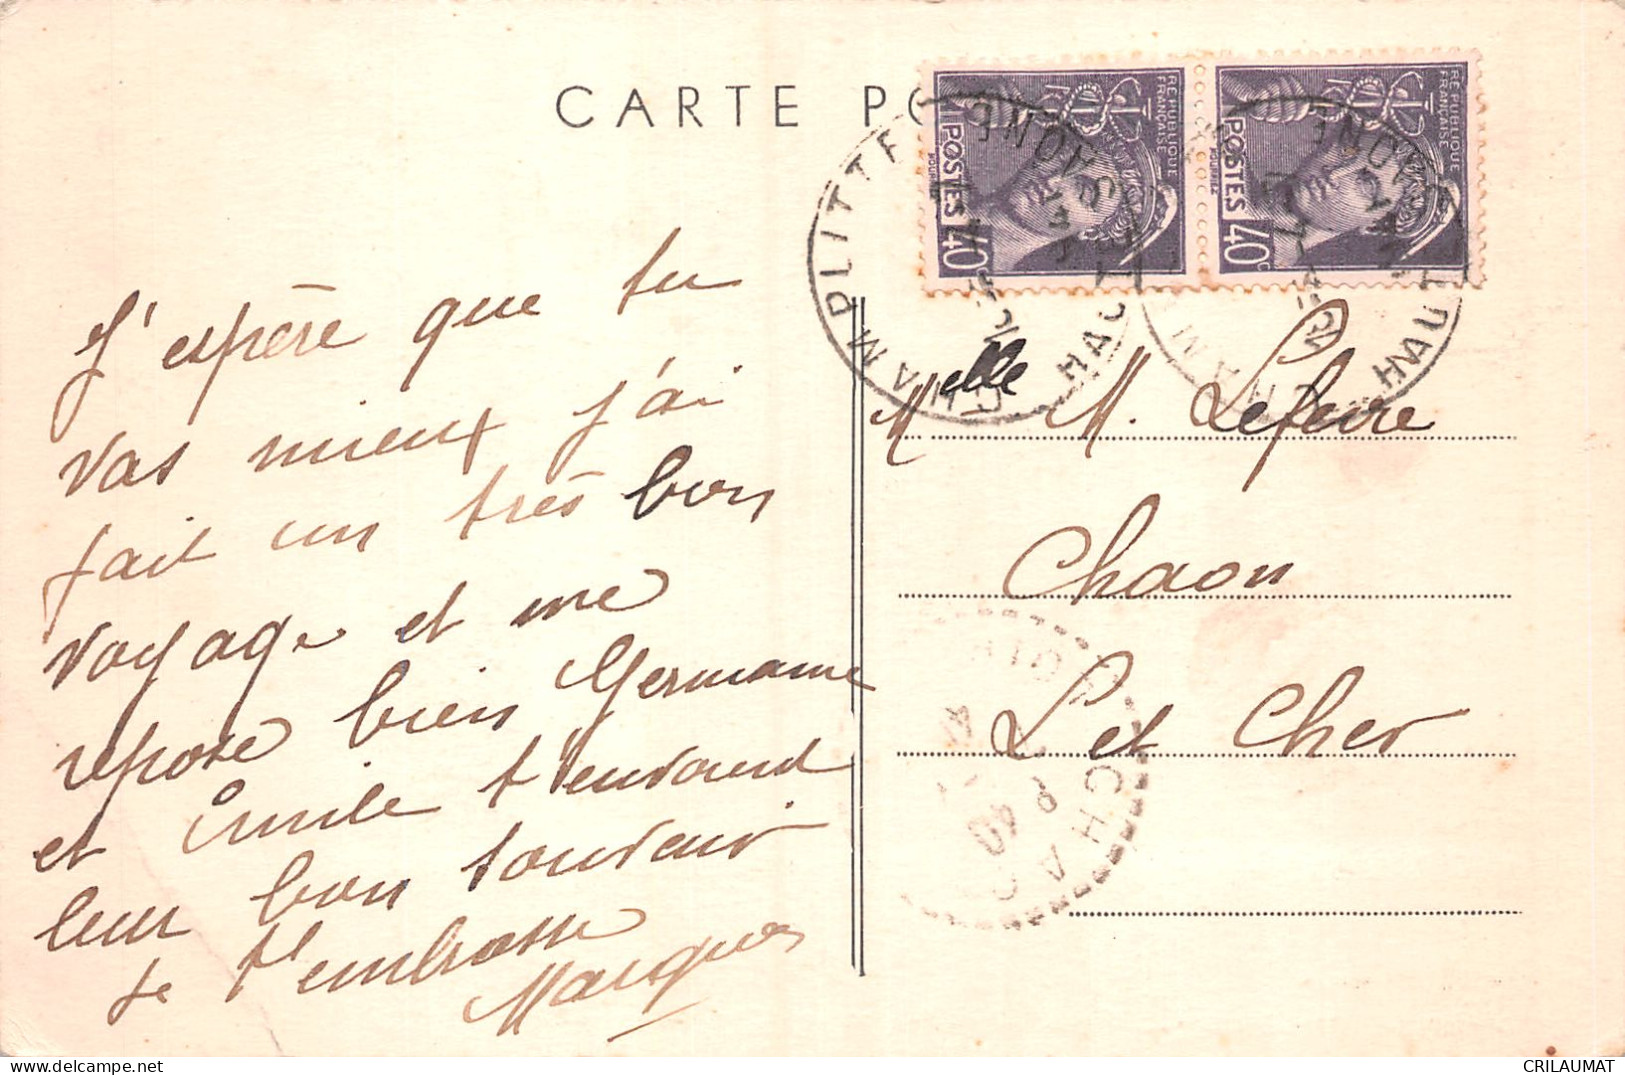 CARTE PO
RÉPUBLIQUE
FRANÇAISE
POSTES
40c
RÉPUBLIQUE
FRANÇAISE
POSTES
40c
CHAMPLITTE
HAUTE SAONE
J'espère que tu
vas mieux j'ai
fait un très bon
voyage et me
repose bien Germaine
et Émile t'envoient
leur bon souvenir
je t'embrasse
Melle M. Lefevre
Chaon
L et Cher
40
CRILAUMAT